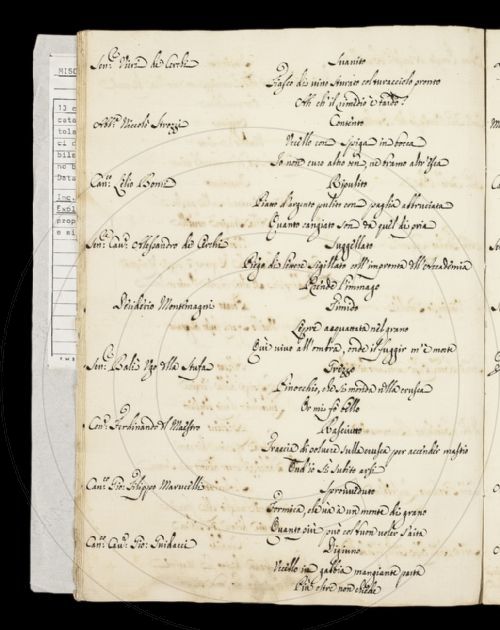 MISC
Sen.re Vieri de Cerchi
Svanito
Fiasco di vino
col turacciolo pronto
Ah ch'il rimedio è tardo!
Abb.e Niccolò Strozzi
Contento
Uccello con Spiga in bocca
Io non curo altro ben, nè bramo altr'esca
Can.co Lelio Bonsi
Ripulito
Piatto d'argento pulito con paglia abbruciata
Quanto cangiato son da quel di pria
Sen.re Cav.re Alessandro de Cerchi
Suggellato
di
Sigillato coll'impronta dell'Accademia
Rende l'immago
Desiderio Montemagni
Timido
Lepre acquattata nel grano
Qui vivo all'ombra, onde il fuggir m'è morte
Sen.re Balì Ugo della Stufa
Grezzo
Pinocchio, che si monda nella crusca
Or mi fo bello
Cav.re Ferdinando del Maestro
Nascituro
Traccia di polvere sulla crusca per accender mastio
Ond'io sì subito arsi
Can.co Gio: Filippo Marucelli
Sprovveduto
Formica, che va a un monte di grano
Quanto più può col buon voler s'aita
Can.co Cav.re Gio: Guidacci
Digiuno
Uccello in gabbia mangiante pasta
Più oltre non chiede